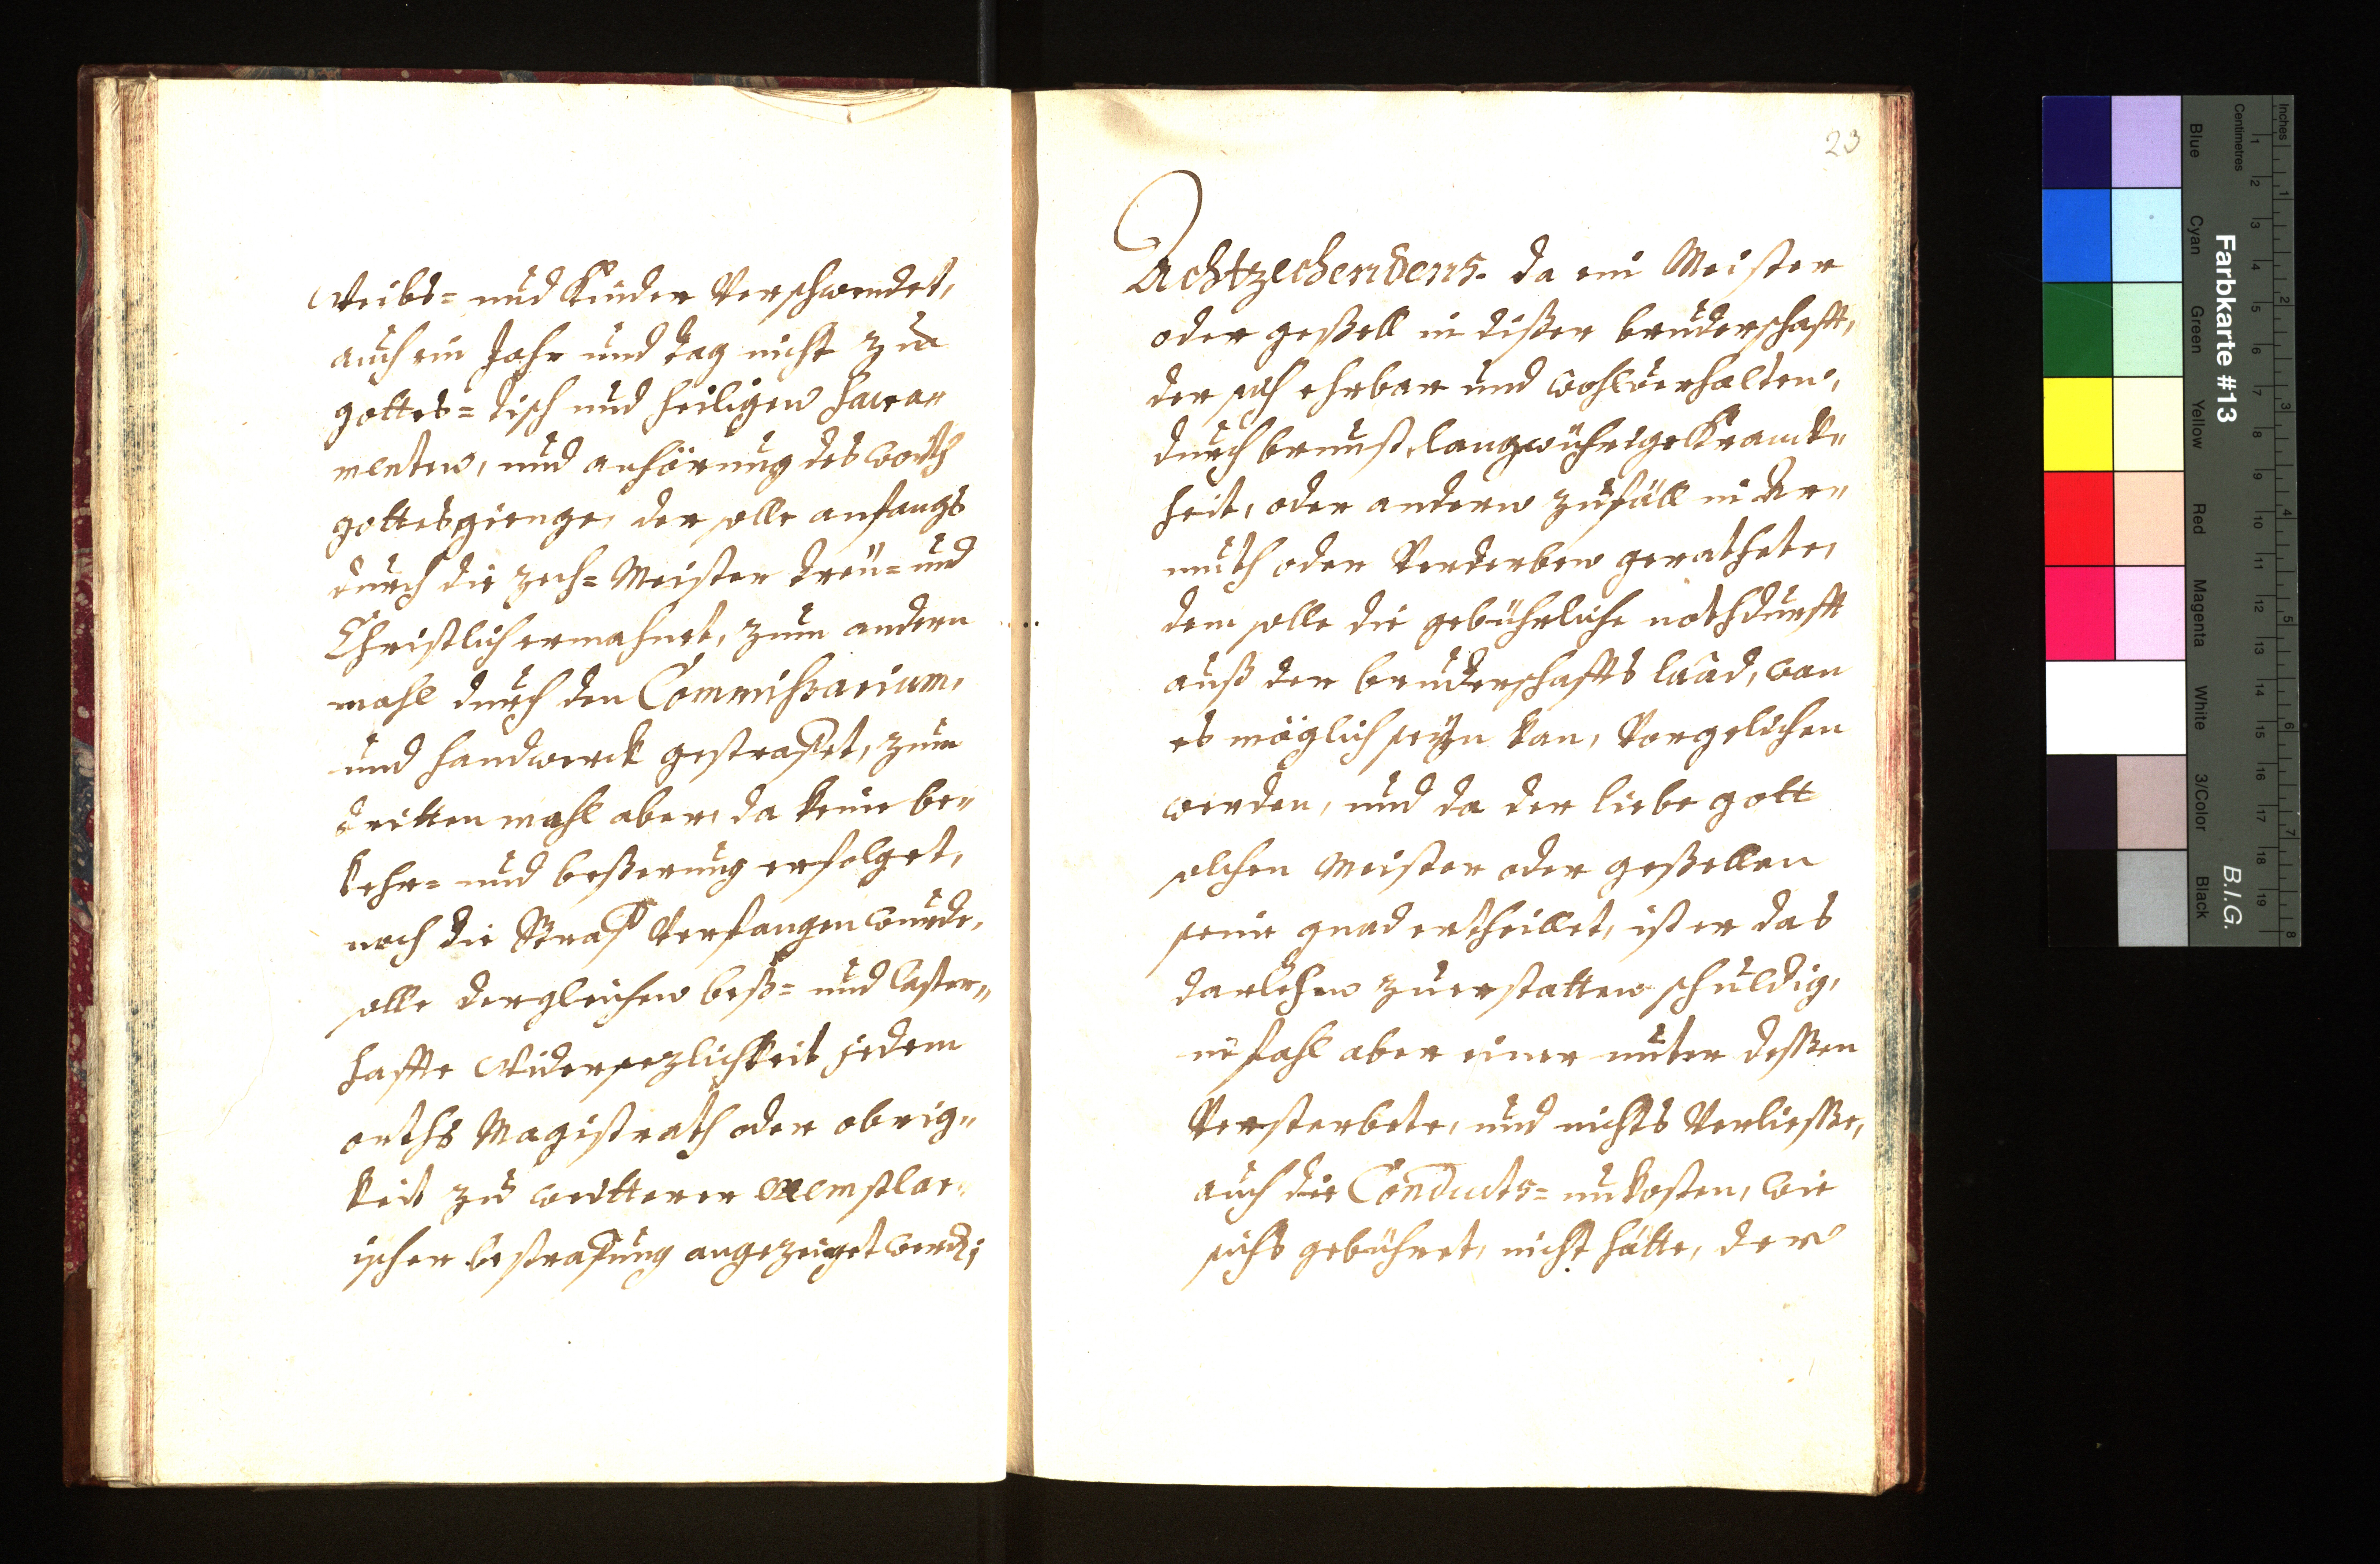 Weibs= und Kinder Verschwendet,
auch ein Jahr und tag nicht zu
gottes=tisch und heiligen Sacra„
menten, und anhörung des worth
gottes gienge, der solle anfangs
durch die zech=Meister treü= und
Christlich ermahnet, zum andern
mahl durch den Commißarium,
und handwerck gestrafet, zum
dritten mahl aber, da keine be„
kehr= und beßerung erfolget,
noch die Straf Verfangen wurde,
solle dergleichen beß= und laster„
haffte Widersezlichkeit jedem
orths Magistrath oder obrig„
keit zu weitterer exemplar„
ischer bestrafung angezeiget werdn;
23
Achtzechendens. da ein Meister
oder geßell in dißer bruderschafft,
der sich ehrbar und wohl verhalten,
durch brunst, langwührige Kranck„
heit, oder andern zufäll in Ar„
muth oder Verderben gerathete,
dem solle die gebührliche nothdurfft
auß der bruderschaffts laad, wan
es möglich seÿn kan, Vorgelichen
werden, und da der liebe gott
solchen Meister oder geßellen
seine gnad ertheillet, ist er das
darlehen zuerstatten schuldig,
im fahl aber einer unter deßen
Versterbete, und nichts Verließe,
auch die Conducts=unkosten, wie
sichs gebühret, nicht hätte, der